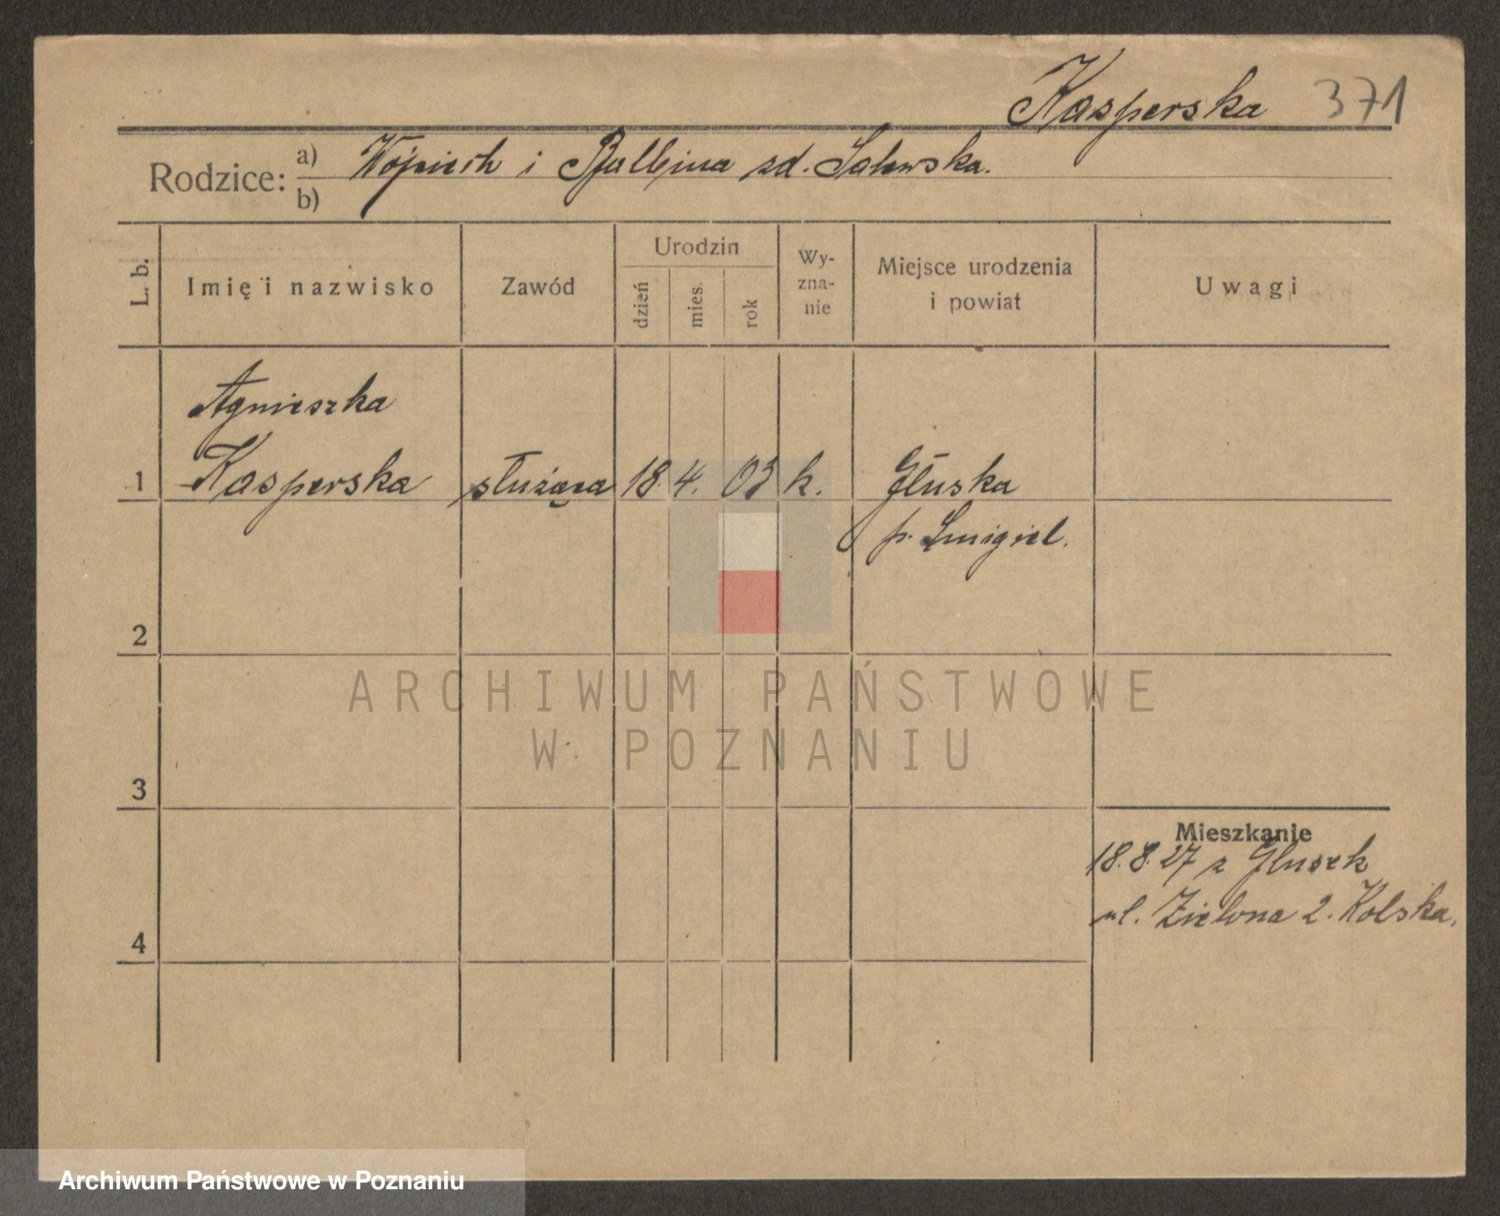 Kasperska 371
Rodzice: a) Wojciech i Balbina zd. Salewska.
b)
L. b. Imię i nazwisko Zawód Urodzin dzień mies. rok Wy-zna-nie Miejsce urodzenia i powiat Uwagi
Agnieszka
1 Kasperska służąca 18. 4. 03 k. Głuska
p. Smigiel.
2
ARCHIWUM PAŃSTWOWE
W POZNANIU
3
Mieszkanie
18.8.27 z Głusek
4 ul. Zielona 2. Kolska.
Archiwum Państwowe w Poznaniu